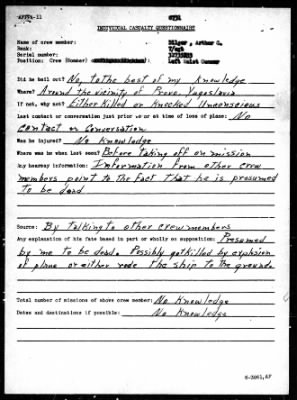 AFPPA-11
INDIVIDUAL CASUALTY QUESTIONNAIRE
Name of crew member: Arthur G.
Rank: T/Sgt
Serial number:
Position: Crew (Bomber) Left Waist Gunner
Did he bail out? No, to the best of my knowledge
Where? Around the vicinity of Yugoslavia
If not, why not? Either Killed or Knocked Unconscious
Last contact or conversation just prior to or at time of loss of plane: No
contact or conversation
Was he injured? No Knowledge
Where was he when last seen? Before taking off on mission
Any hearsay information: Information from other crew
members point to the fact that he is presumed
to be dead
Source: By talking to other crew members
Any explanation of his fate based in part or wholly on supposition: Presumed
by me to be dead. Possibly got killed by explosion
of plane or either rode the ship to the ground.
Total number of missions of above crew member: No Knowledge
Dates and destinations if possible: No Knowledge